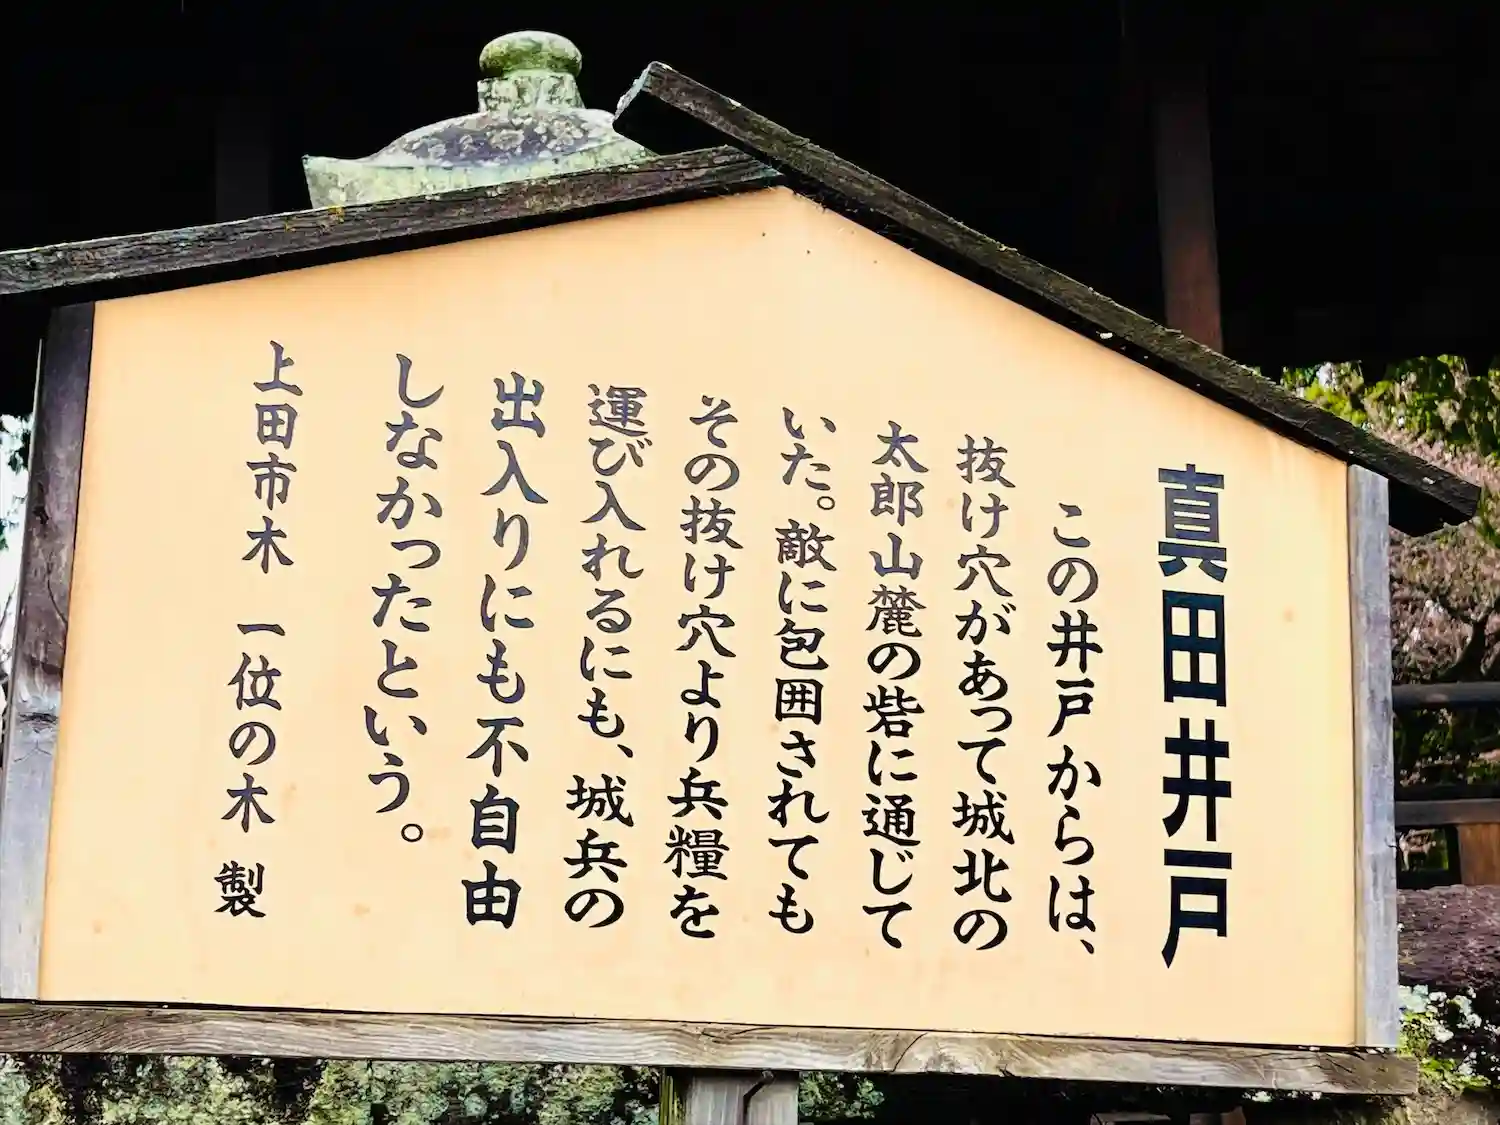 真田井戸
この井戸からは、
抜け穴があって城北の
太郎山麓の砦に通じて
いた。敵に包囲されても
その抜け穴より兵糧を
運び入れるにも、城兵の
出入りにも不自由
しなかったという。
上田市木 一位の木 製